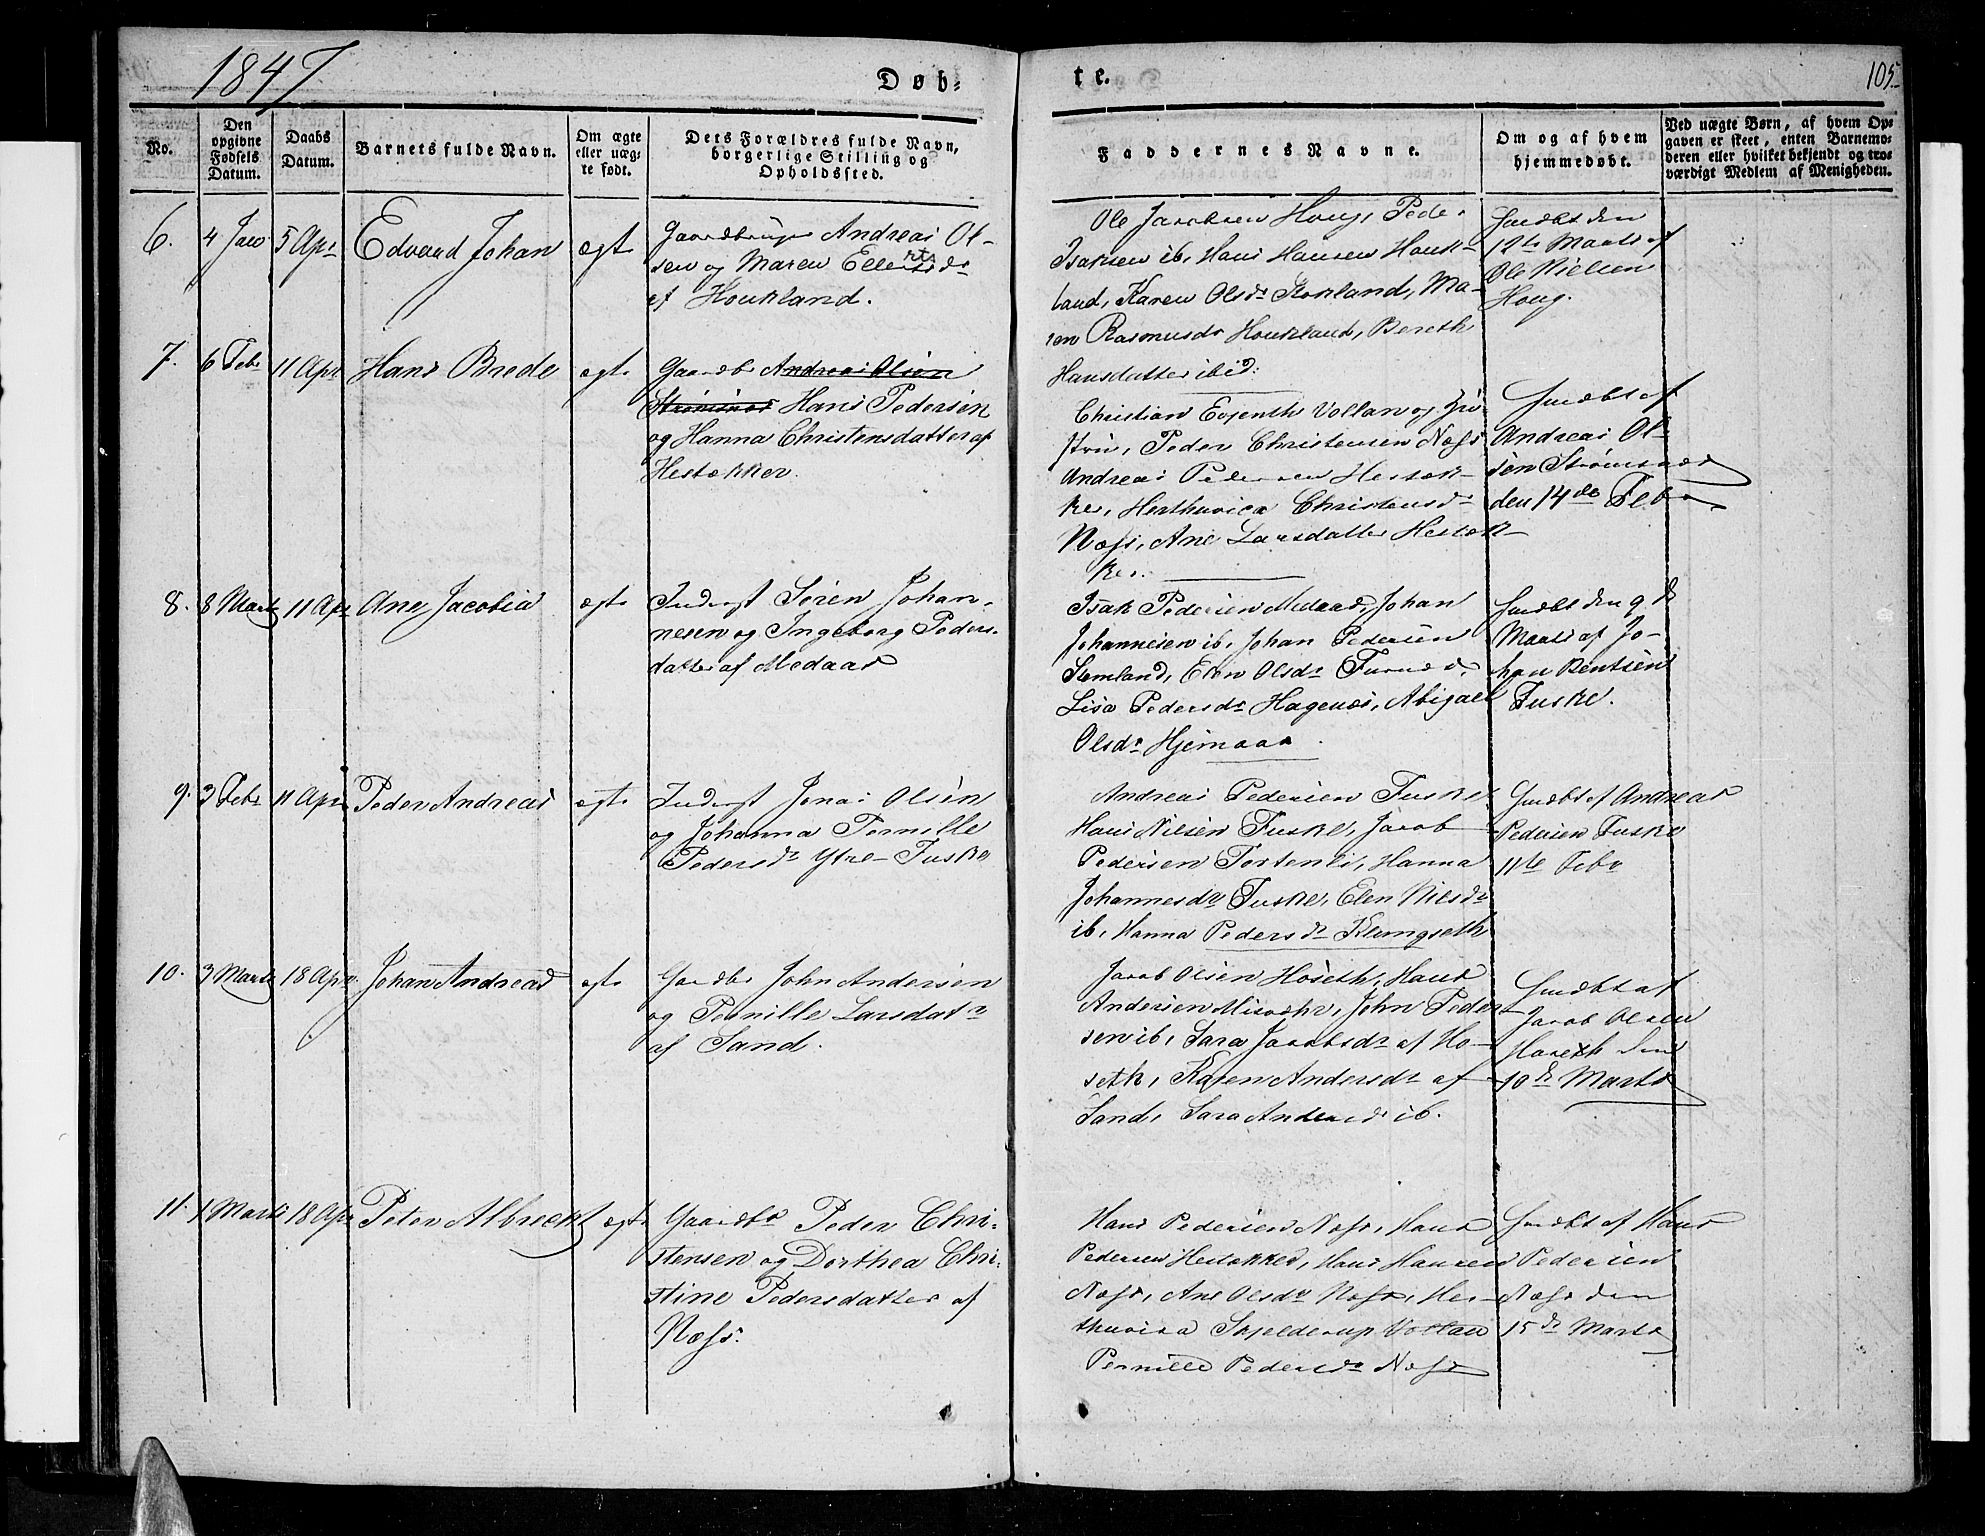 1847
Døb-
te.
105
No.
Den
opgivne
Fødsels
Datum.
Daabs
Datum.
Barnets fulde Navn.
Om ægte
eller uæg-
te født.
Dets Forældres fulde Navn,
borgerlige Stilling og
Opholdssted.
Faddernes Navne.
Om og af hvem
hjemmedøbt.
Ved uægte Børn, af hvem Op-
gaven er skeet, enten Barnemo-
deren eller hvilket bekjendt og tro-
værdigt Medlem af Menigheden.
6.
4 Jan
5 Apr
Edvard Johan
ægte
Andreas Ol-
sen og Maren Ellertsdr
af Houkland.
Ole Jacobsen Houg, Peder
Isaksen ib, Hans Hansen Houk-
land, Karen Olsdr Stokland, Ma-
ren Rasmusdr Houkland, Bereth
Hansdatter ibid:
hmdbt den
12te Marts af
Ole Nielsen
Houg.
7.
6 Febr
11 Apr
Hans Brede
ægte
Gaardbr Andreas Olsen
Strømsnæs Hans Pedersen
og Hanna Christensdatter af
Hestakker.
Christian Vollan og Hu-
stru, Peder Christensen Næss
Andreas Pedersen Hestak-
ker, Herthuvica Christensdr
Næss, Ane Larsdatter Hestak-
ker.
hmdbt af
Andreas Ol-
sen Strømsnæs
den 14de Febr
8.
8 Marts
11 Apr
Ane Jacobia
ægte
Inderst Søren Johan-
nesen og Ingeborg Peders-
datter af Medaas
Isak Pedersen Medaas, Johan
Johannesen ib, Johan Pedersen
Stemland, Elen Olsdr
Lisa Pedersdr Hagenæs, Abigael
Olsdr Hjemaas.
hmdbt den 9de
Marts af Jo-
han Bentsen
Fuske.
9.
3 Febr
11 Apr
Peder Andreas
ægte
Inderst Jonas Olsen
og Johanna Pernille
Pedersdr Ytre-Fuske
Andreas Pedersen Fuske
Hans Nilsen Fuske, Jacob
Pedersen Tortenli, Hanna
Johannesdr Fuske, Elen Nilsdr
ib, Hanna Pedersdr Klungseth
hmdbt af Andreas
Pedersen Fuske
11te Febr
10.
3 Marts
18 Apr.
Johan Andreas
ægte
Gaardbr John Andersen
og Pernille Larsdatr
af Sand.
Jacob Olsen Hoseth, Hans
Andersen Misvær, John Peder-
sen ib, Sara Jacobsdr af Ho-
seth, Karen Andersdr af
Sand, Sara Andersdr ib.
hmdbt af
Jacob Olsen
Hoseth den
10de Marts
11.
1 Marts
18 Apr
Peter Albreckt
ægte
Gaardbr Peder Chri-
stensen og Dorthea Chri-
stine Pedersdatter af
Næss.
Hans Pedersen Næss, Hans
Pedersen Hestakker, Hans Hansen
Næss, Ane Olsdr Næss, Her-
thuvica Skjelderup Vollan
Pernille Pedersdr Næss
hmdbt af Hans
Pedersen
Næss den
15de Marts